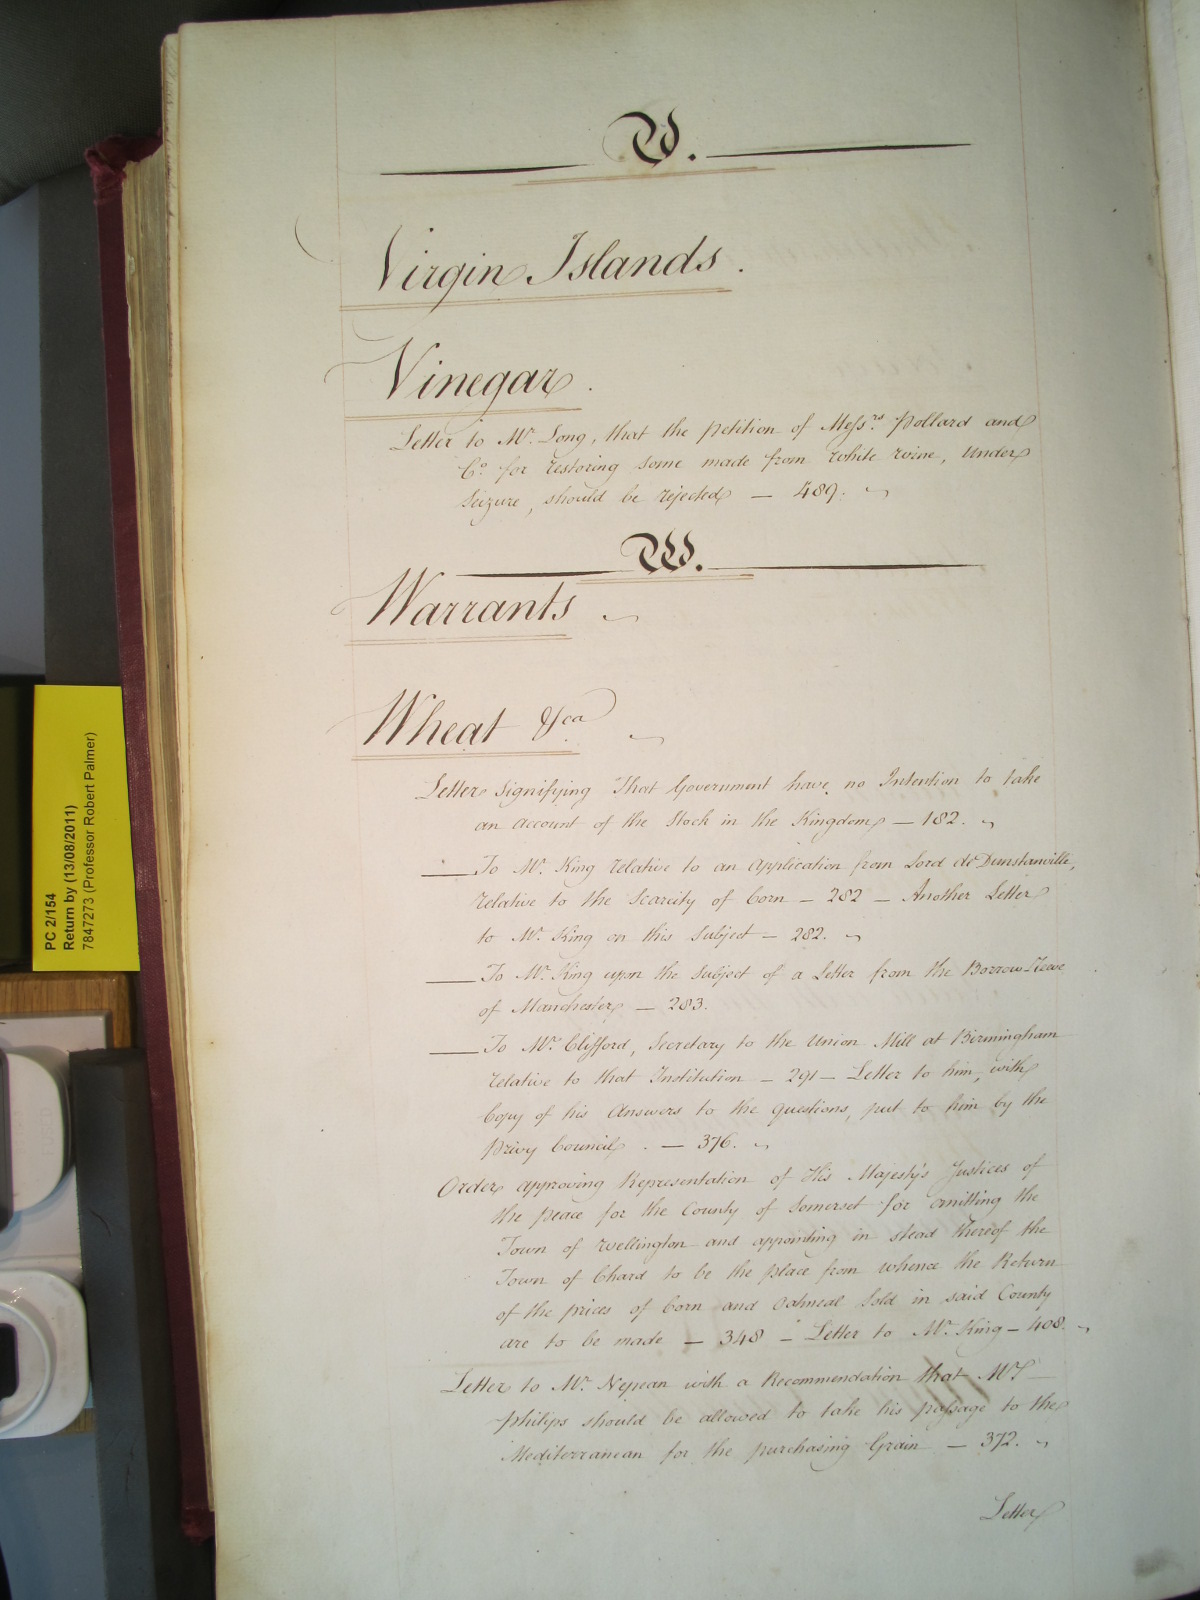 V.
Virgin Islands.
Vinegar.
Letter to Mr. Long, that the petition of Messrs. Pollard and
Co. for restoring some made from white wine, Under
Seizure, should be rejected — 489.
W.
Warrants
Wheat &ca
Letter signifying That Government have no Intention to take
an account of the Stock in the Kingdom — 182.
—— To Mr. King relative to an application from Lord de Dunstanville,
relative to the Scarcity of Corn — 282 — Another Letter
to Mr. King on this Subject — 282.
—— To Mr. King upon the Subject of a Letter from the Borrow-Reeve
of Manchester — 283.
—— To Mr. Clifford, Secretary to the Union Mill at Birmingham
relative to that Institution — 291 — Letter to him, with
Copy of his Answers to the questions, put to him by the
Privy Council. — 376.
Order approving Representation of His Majesty's Justices of
the peace for the County of Somerset for omitting the
Town of Wellington and appointing in stead thereof the
Town of Chard to be the place from whence the Return
of the prices of Corn and Oatmeal Sold in said County
are to be made — 348 — Letter to Mr. King — 408.
Letter to Mr. Nepean with a Recommendation that Mr.
Philips should be allowed to take his passage to the
Mediterranean for the purchasing Grain — 372.
Letter
PC 2/154
Return by (13/08/2011)
7847273 (Professor Robert Palmer)